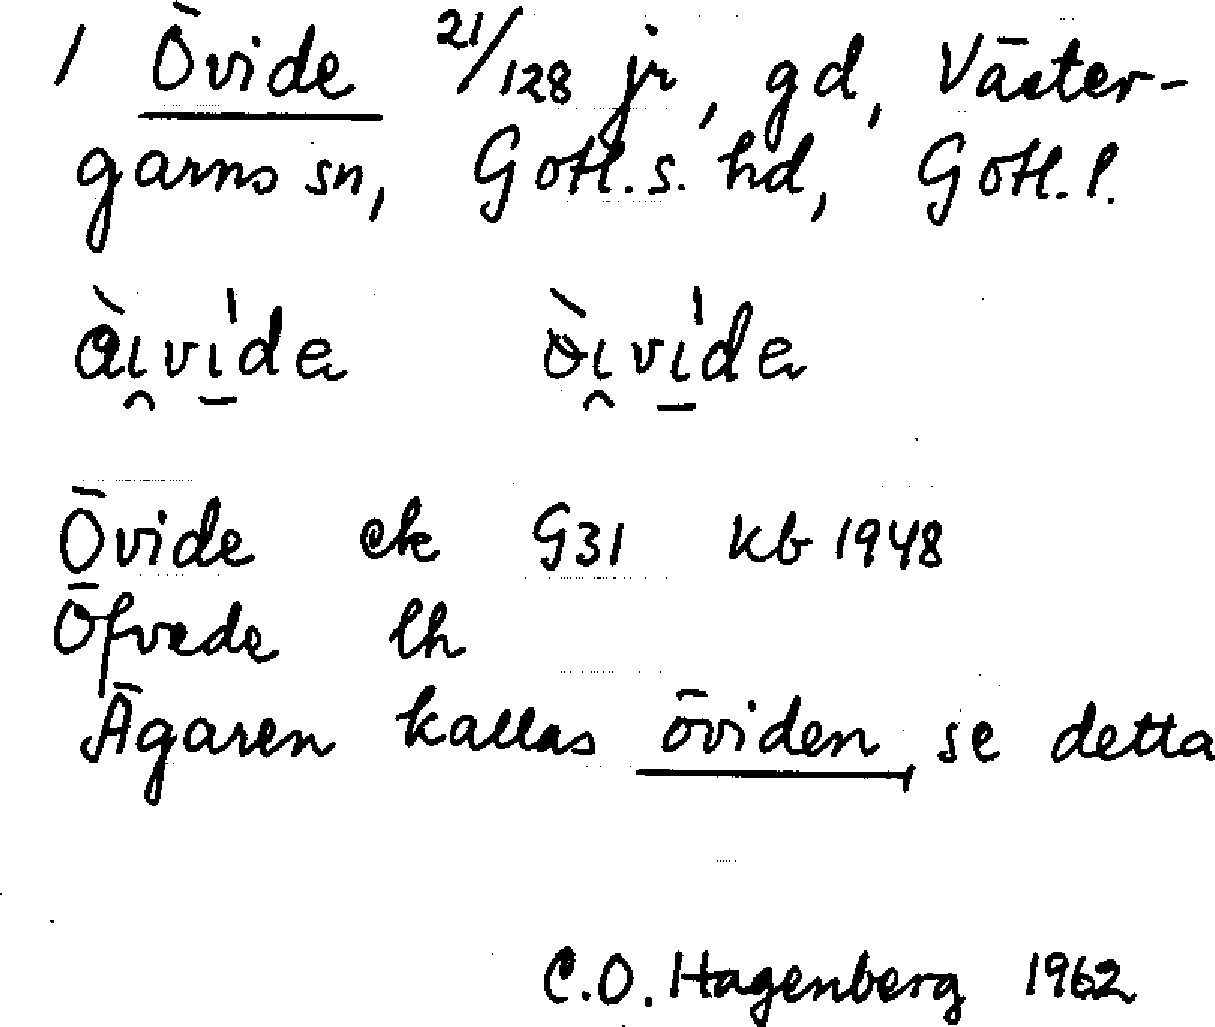 1 Övide 21/128 jr, gd, Väster-
garns sn, Gotl.s. hd, Gotl.l.
àı̯vı̱̍da òı̯vı̱̍da
Övide ek G31 kb 1948
Öfvede lh
Ägaren kallas öviden, se detta
C.O. Hagenberg 1962